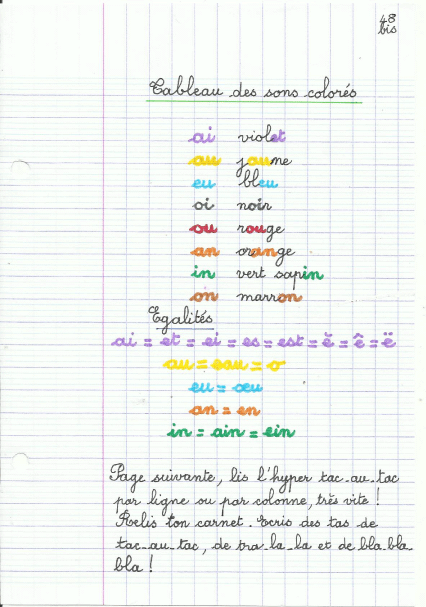 48
bis
Tableau des sons colorés
ai violet
au jaune
eu bleu
oi noir
ou rouge
an orange
in vert sapin
on marron
Egalités
ai = et = ei = es = est = ĕ = ê = ë
au = eau = o
eu = œu
an = en
in = ain = ein
Page suivante, lis l'hyper tac-au-tac
par ligne ou par colonne, très vite !
Relis ton carnet. Ecris des tas de
tac-au-tac, de tra-la-la et de bla-bla-
bla !